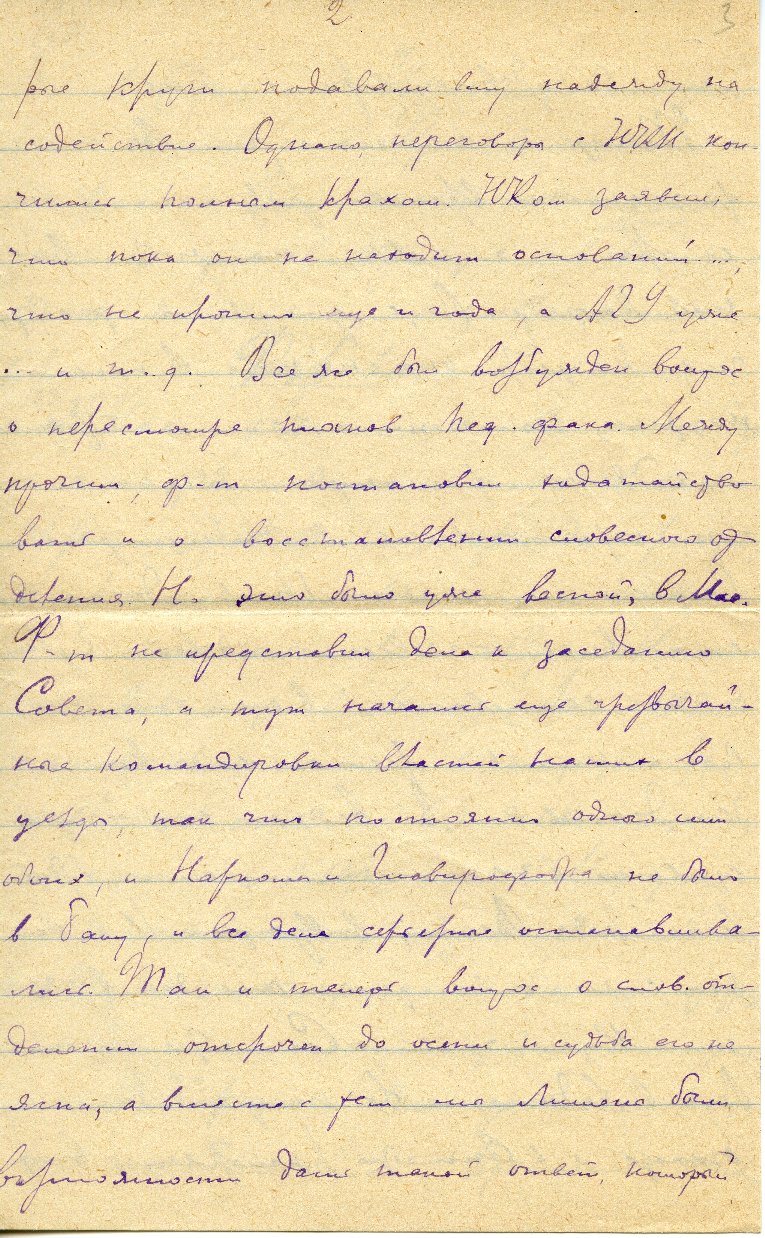 2 3
рые круги подавали ему надежду на
содействие. Однако, переговоры с НКП кон-
чились полным крахом. НКом заявил,
что пока он не находит оснований ...,
что не прошло еще и года, а АГУ уже
... и т. д. Все же был возбужден вопрос
о пересмотре планов Пед. фака. Между
прочим, ф-т постановил ходатайство-
вать и о восстановлении словесного от-
деления. Но это было уже весной, в Мае.
Ф-т не представил дела к заседанию
Совета, а тут начались еще чрезвычай-
ные командировки властей наших в
уезды, так что постоянно одного или
обоих, и Наркома и Главпрофобра не было
в Баку, и все дела серьезные останавлива-
лись. Так и теперь вопрос о слов. от-
делении отсрочен до осени и судьба его не
ясна, а вместе с тем мы лишены были
возможности дать такой ответ, который